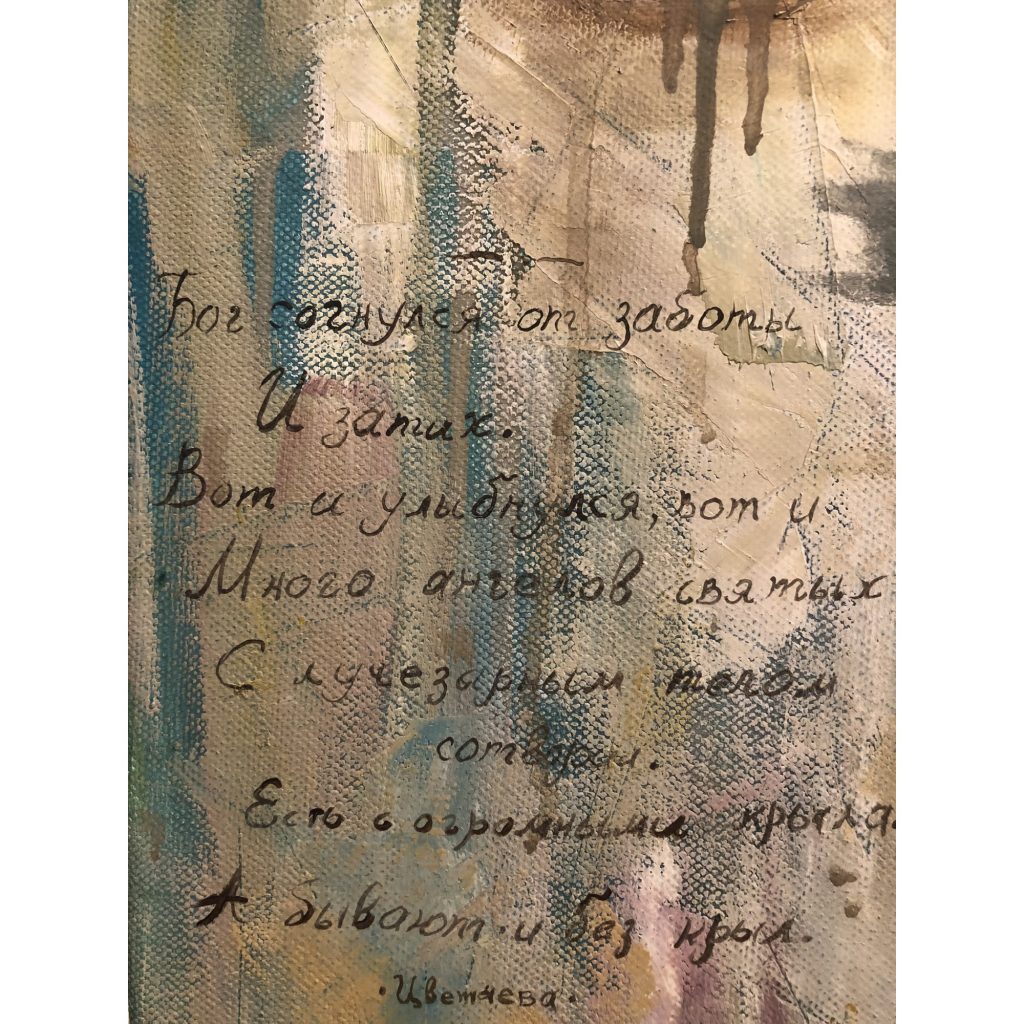 Бог согнулся от заботы
И затих.
Вот и улыбнулся, вот и
Много ангелов святых
С лучезарным телом
сотворил.
Есть с огромными крыла
А бывают и без крыл.
·Цветаева·